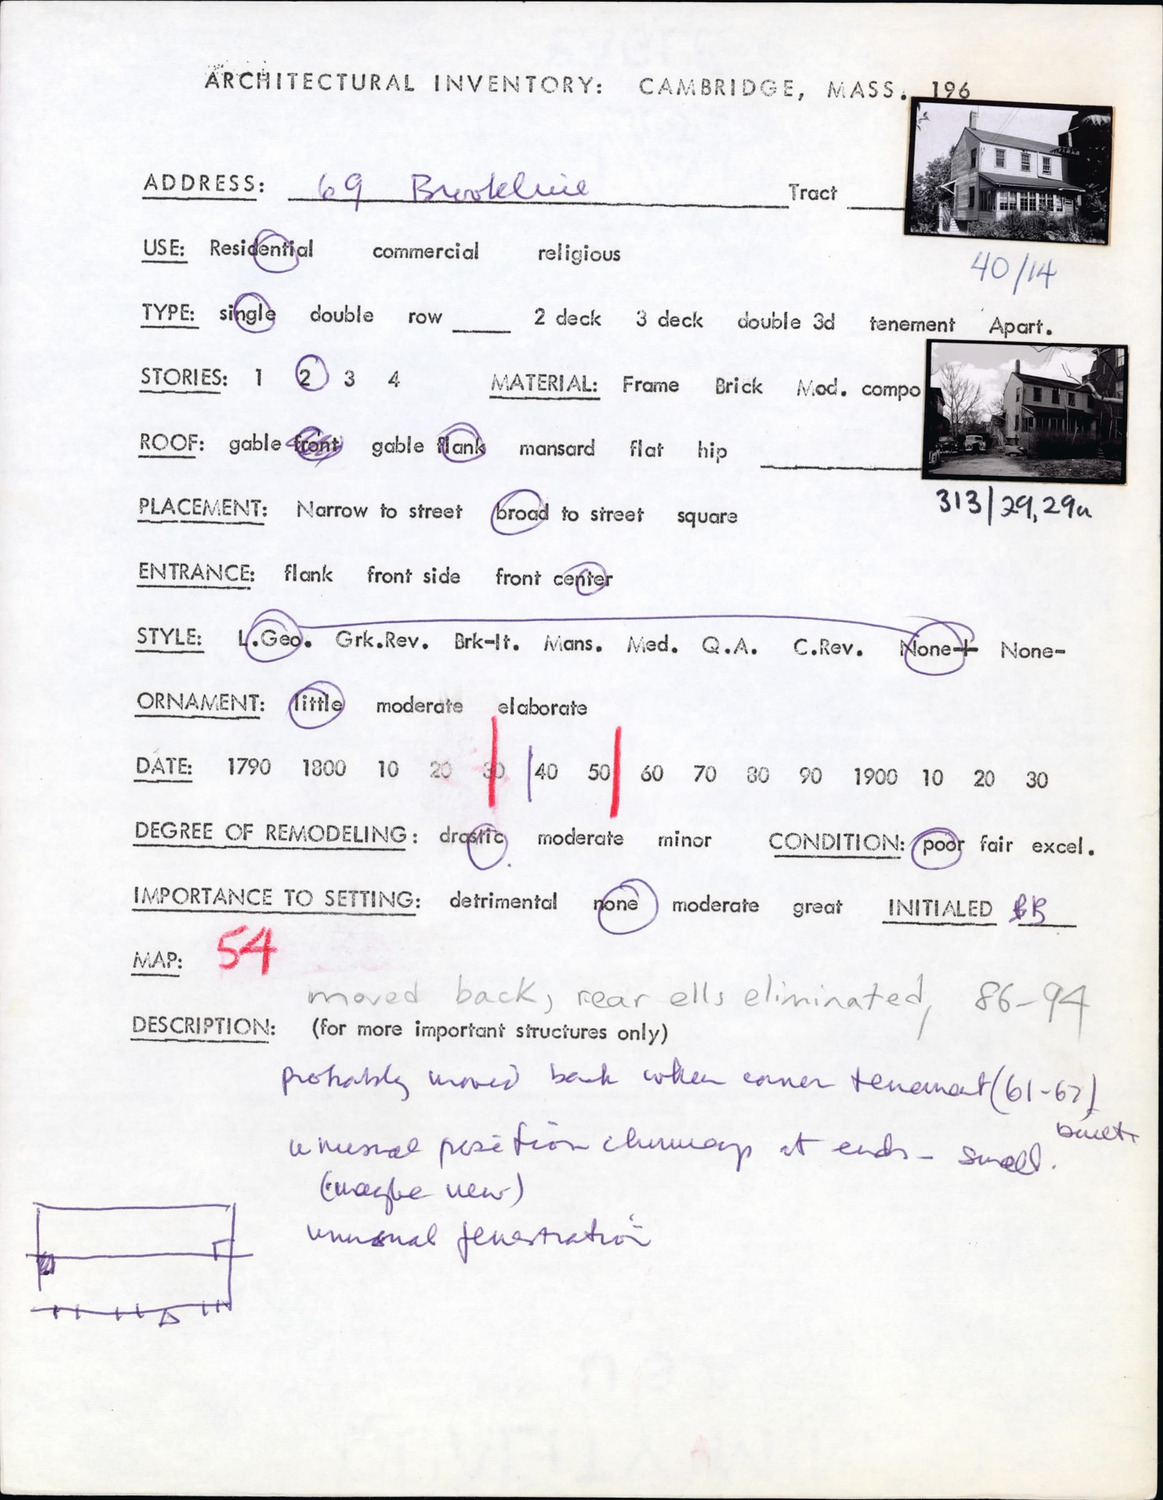 ARCHITECTURAL INVENTORY: CAMBRIDGE, MASS. 196
ADDRESS: 69 Brookline Tract
USE: Residential commercial religious
40/14
TYPE: single double row ____ 2 deck 3 deck double 3d tenement Apart.
STORIES: 1 2 3 4 MATERIAL: Frame Brick Mod. compo
ROOF: gable front gable flank mansard flat hip
313/29,29a
PLACEMENT: Narrow to street broad to street square
ENTRANCE: flank front side front center
STYLE: L.Geo. Grk.Rev. Brk-It. Mans. Med. Q.A. C.Rev. None+ None-
ORNAMENT: little moderate elaborate
DATE: 1790 1800 10 20 30 40 50 60 70 80 90 1900 10 20 30
DEGREE OF REMODELING: drastic moderate minor CONDITION: poor fair excel.
IMPORTANCE TO SETTING: detrimental none moderate great INITIALED BR
MAP: 54
moved back, rear ells eliminated, 86-94
DESCRIPTION: (for more important structures only)
probably moved back when corner tenement (61-67)
built
unusual position chimneys at ends - small.
(maybe new)
unusual fenestration